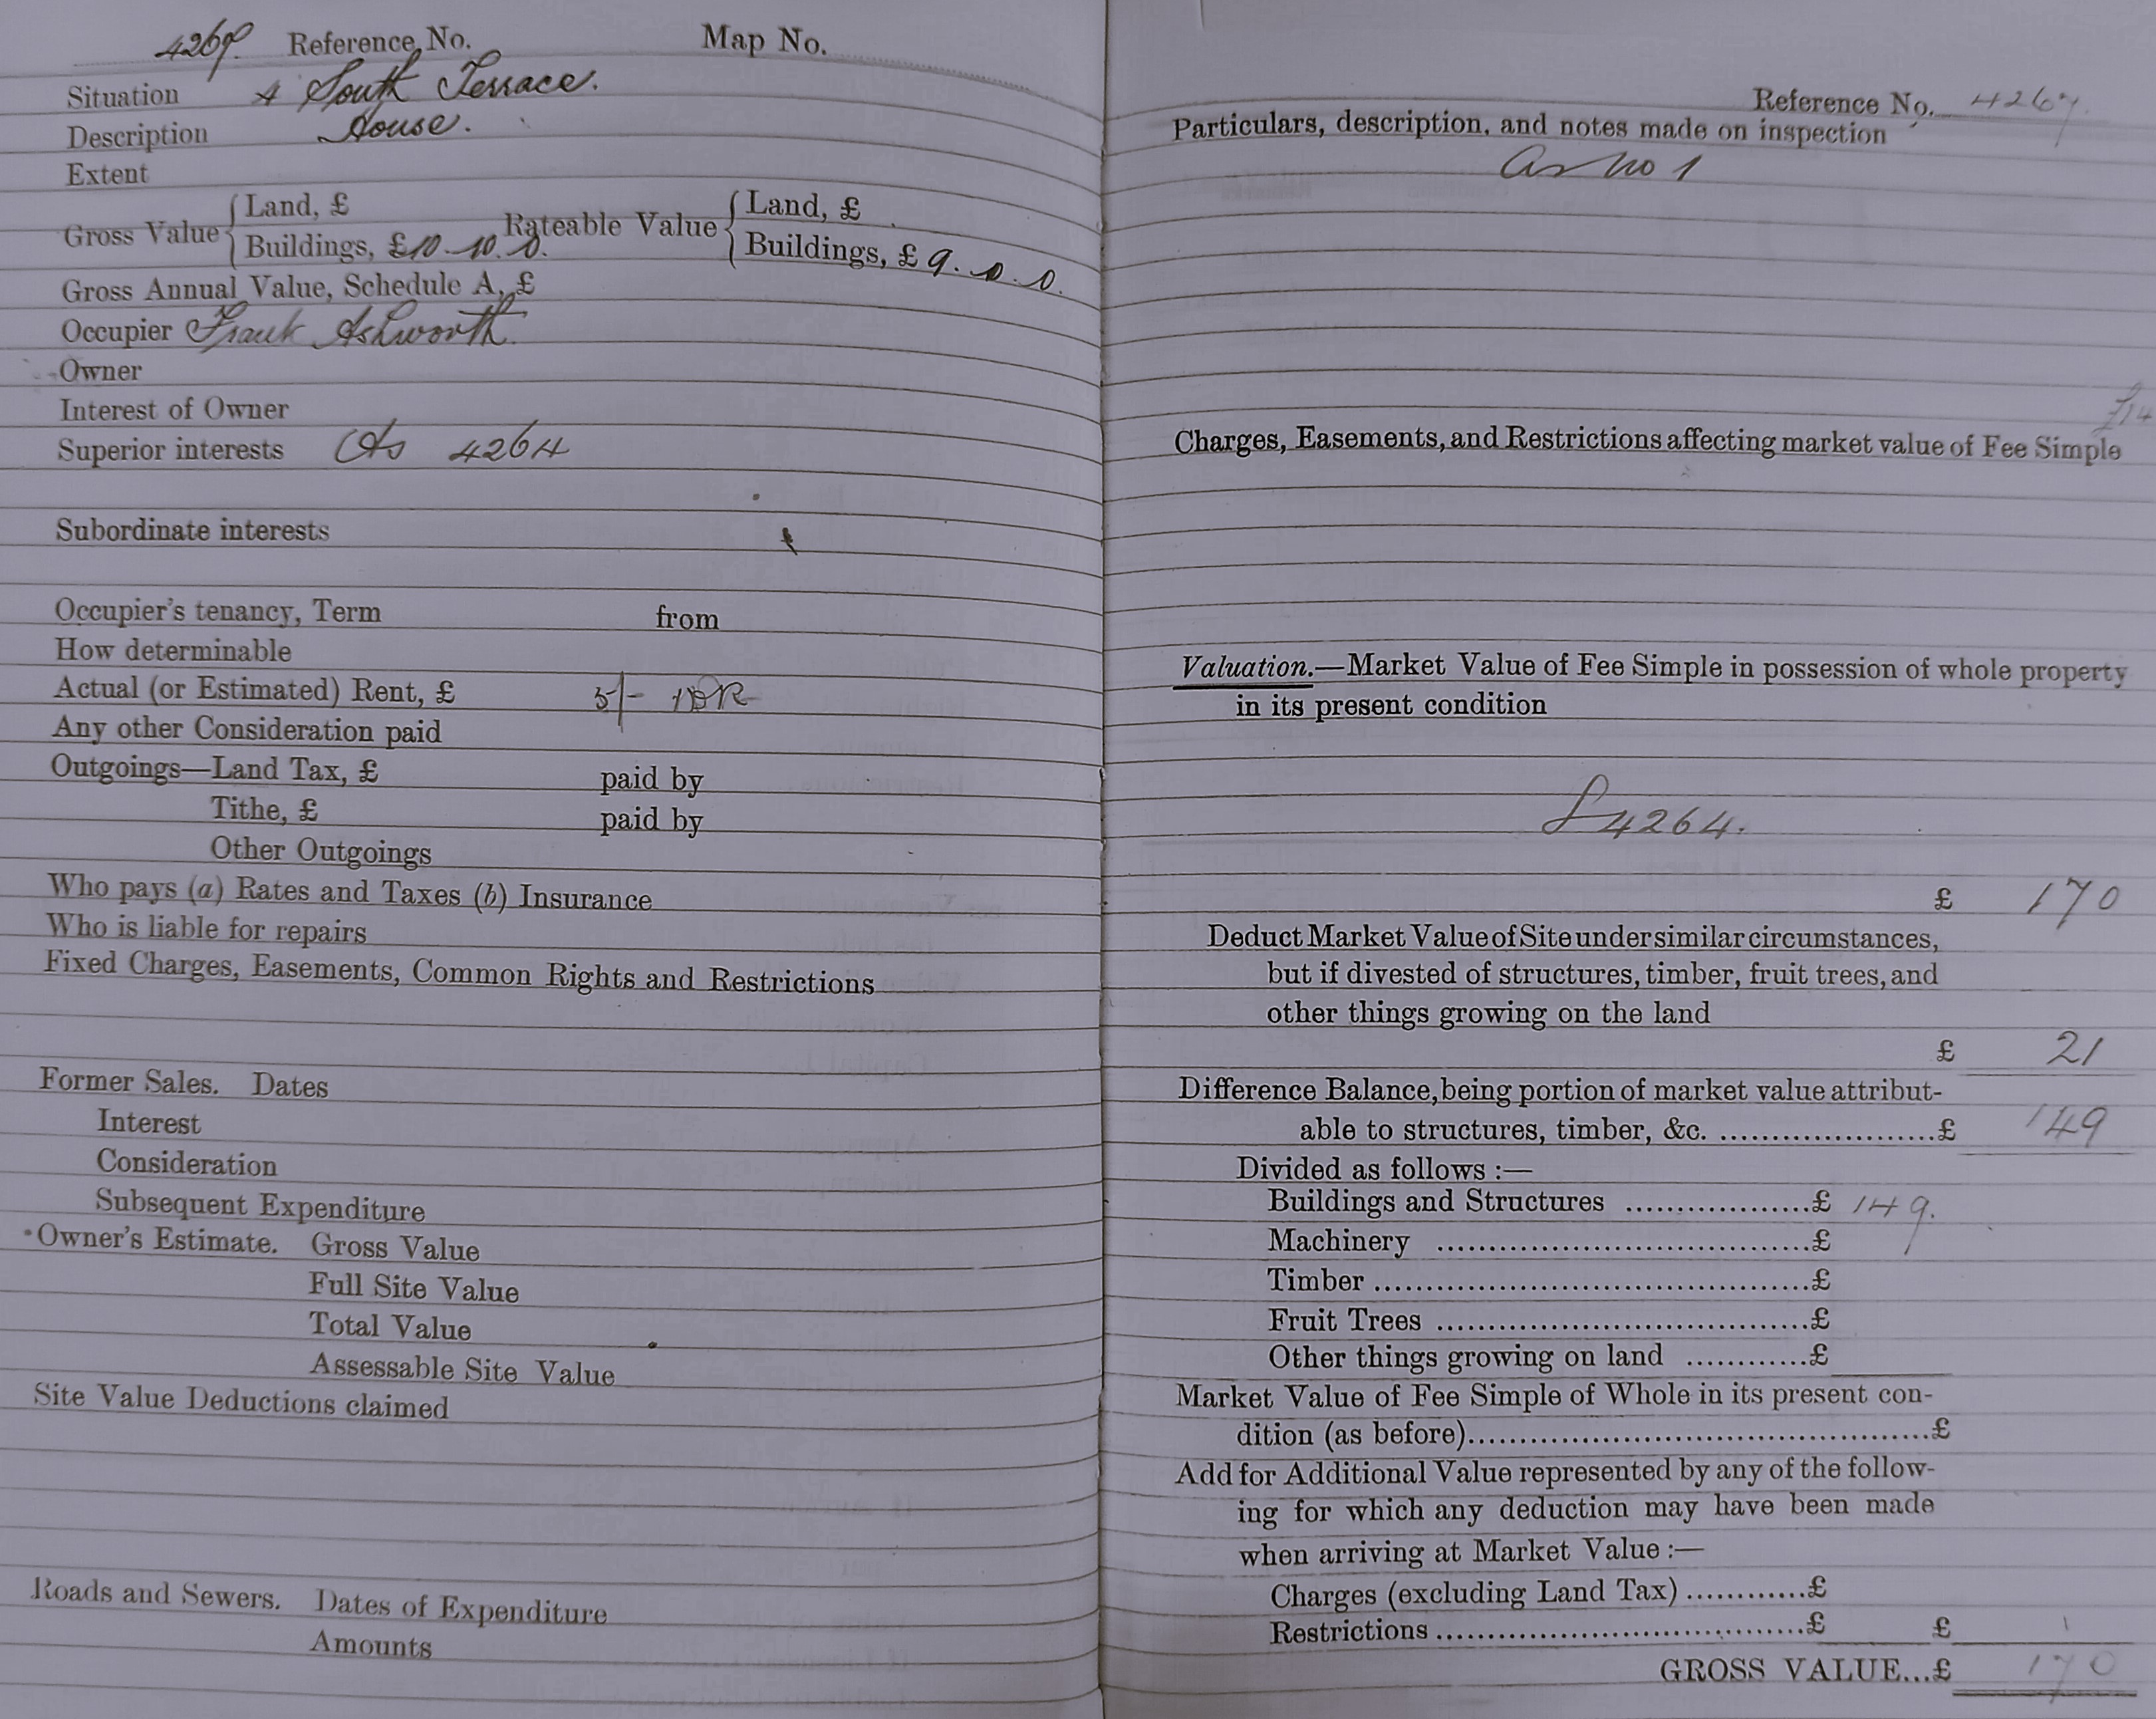 4267. Reference No. Map No.
Situation 4 South Terrace.
Description House.
Extent
Gross Value { Land, £ Rateable Value { Land, £
Buildings, £10.10.0. Buildings, £ 9.0.0.
Gross Annual Value, Schedule A, £
Occupier Frank Ashworth.
Owner
Interest of Owner
Superior interests As 4264
Subordinate interests
Occupier's tenancy, Term from
How determinable
Actual (or Estimated) Rent, £ 5/-
Any other Consideration paid
Outgoings—Land Tax, £ paid by
Tithe, £ paid by
Other Outgoings
Who pays (a) Rates and Taxes (b) Insurance
Who is liable for repairs
Fixed Charges, Easements, Common Rights and Restrictions
Former Sales. Dates
Interest
Consideration
Subsequent Expenditure
Owner's Estimate. Gross Value
Full Site Value
Total Value
Assessable Site Value
Site Value Deductions claimed
Roads and Sewers. Dates of Expenditure
Amounts
Reference No. 4267.
Particulars, description, and notes made on inspection
as no 1
£14
Charges, Easements, and Restrictions affecting market value of Fee Simple
Valuation.—Market Value of Fee Simple in possession of whole property
in its present condition
£4264.
£ 170
Deduct Market Value of Site under similar circumstances,
but if divested of structures, timber, fruit trees, and
other things growing on the land
£ 21
Difference Balance, being portion of market value attribut-
able to structures, timber, &c. ......................£ 149
Divided as follows :—
Buildings and Structures ..................£ 149.
Machinery ....................................£
Timber ..........................................£
Fruit Trees ....................................£
Other things growing on land ............£
Market Value of Fee Simple of Whole in its present con-
dition (as before)..............................................£
Add for Additional Value represented by any of the follow-
ing for which any deduction may have been made
when arriving at Market Value :—
Charges (excluding Land Tax) ............£
Restrictions ....................................£ £
GROSS VALUE...£ 170